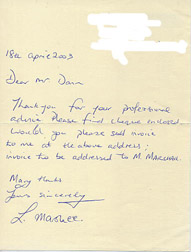 18th April 2003
Dear Mr. Dann
Thank you for your professional
advice. Please find cheque enclosed.
Would you please send invoice
to me at the above address;
invoice to be addressed to M.
Many thanks
Yours sincerely
L.